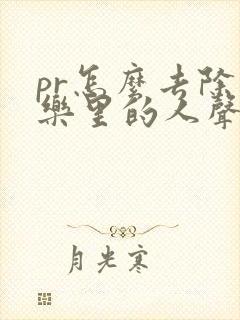 pr怎麼去除
樂里的人聲
月光寒